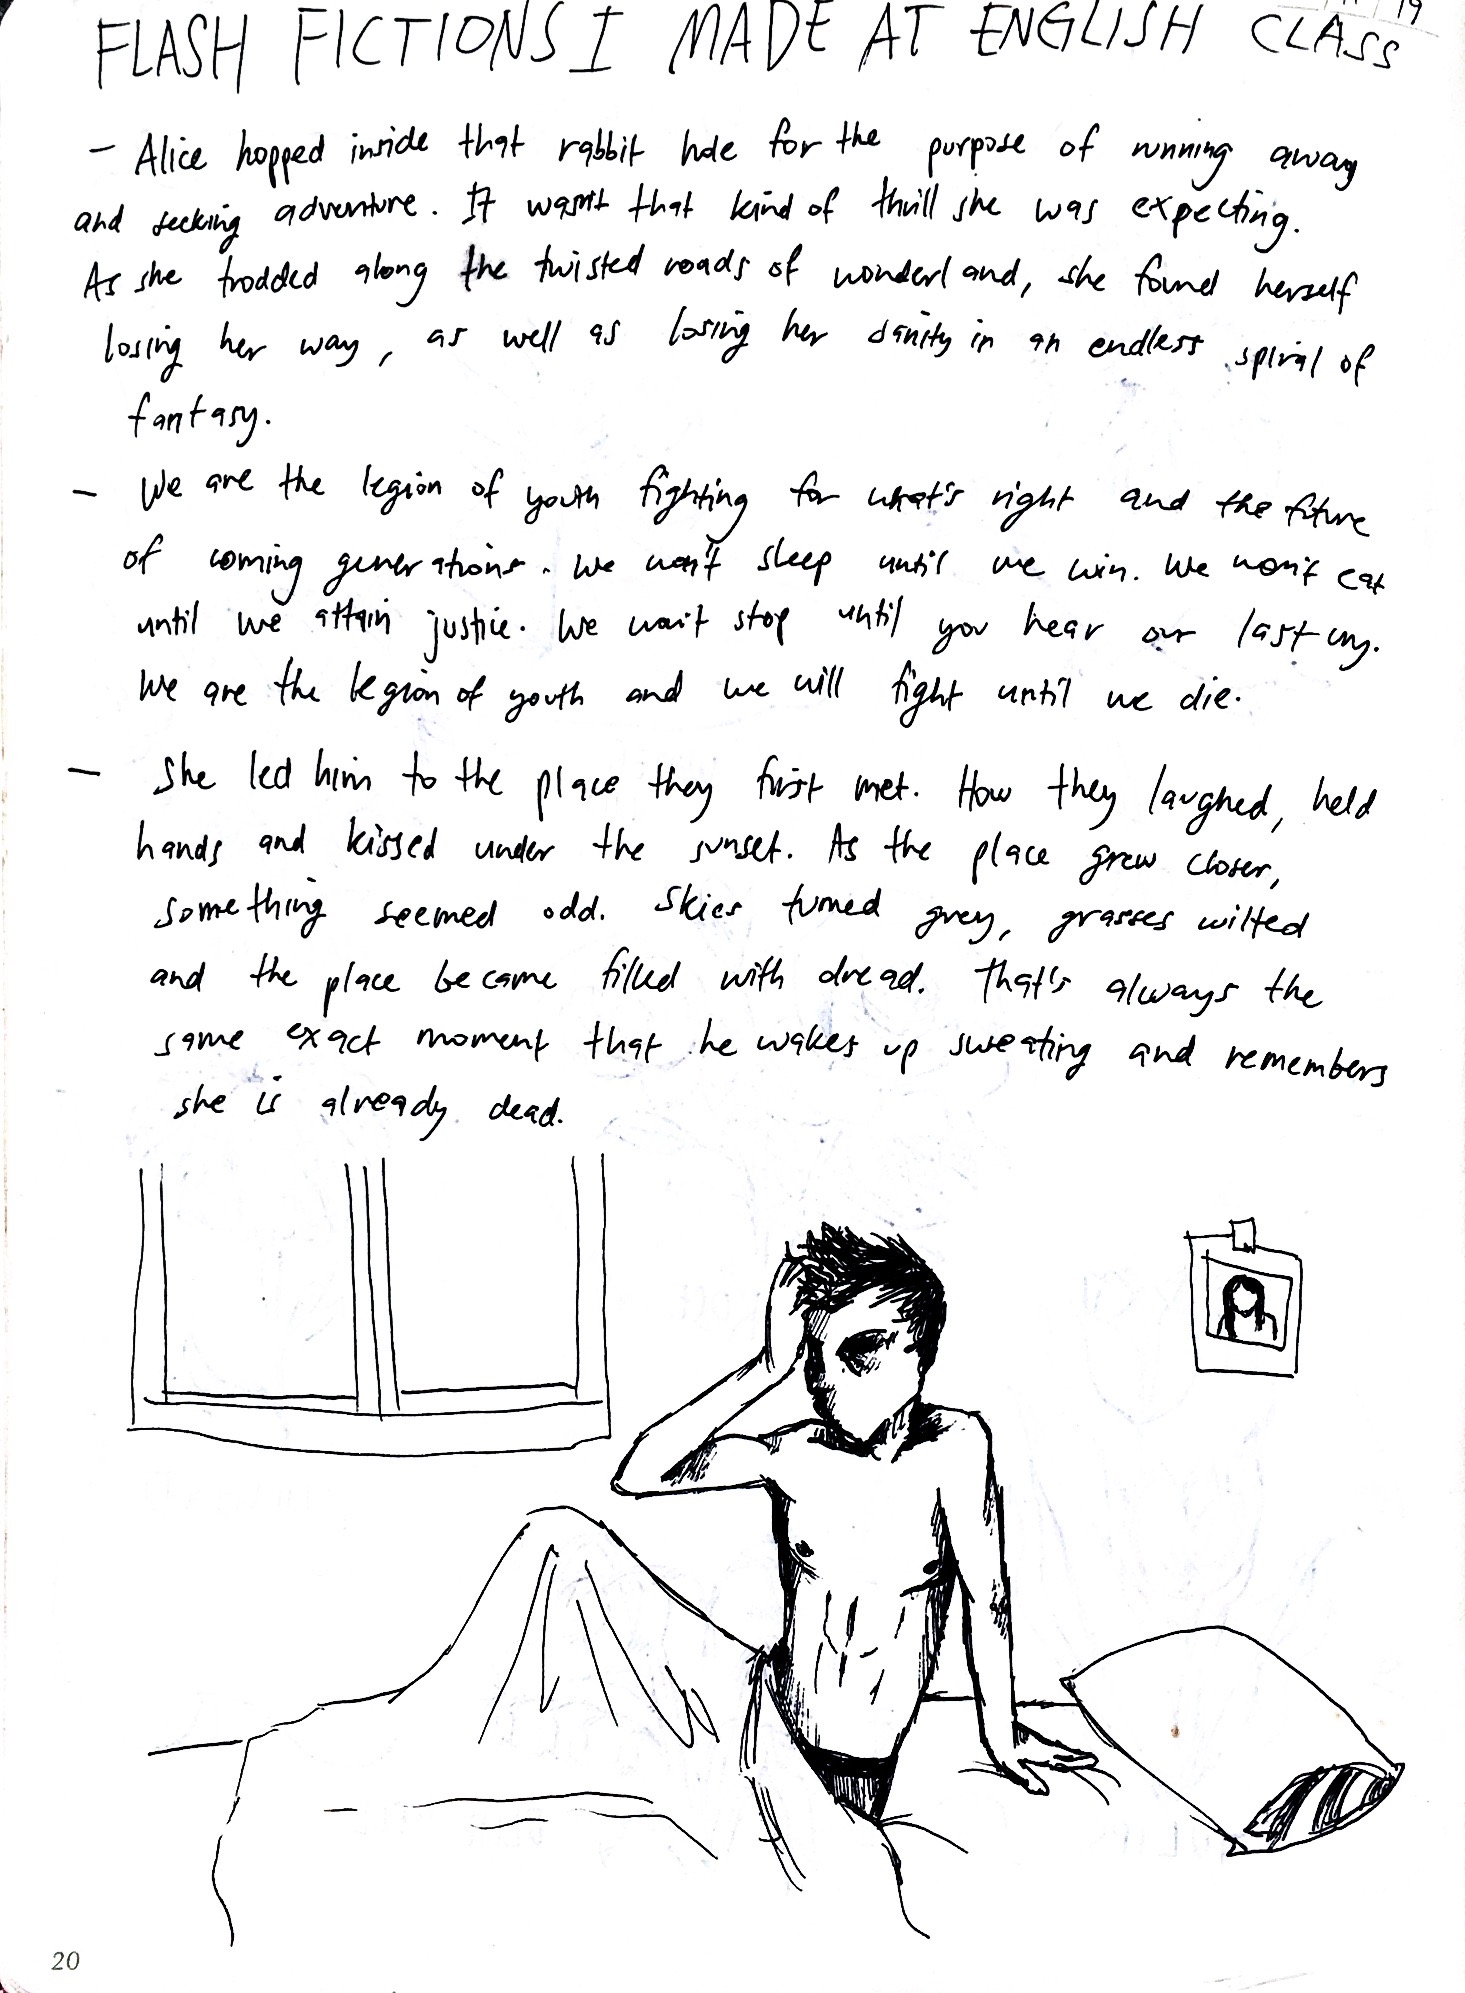 19
FLASH FICTIONS I MADE AT ENGLISH CLASS
- Alice hopped inside that rabbit hole for the purpose of running away
and seeking adventure. It wasn't that kind of thrill she was expecting.
As she trodded along the twisted roads of wonderland, she found herself
losing her way, as well as losing her sanity in an endless spiral of
fantasy.
- We are the legion of youth fighting for what's right and the future
of coming generations. We won't sleep until we win. We won't eat
until we attain justice. We won't stop until you hear our last cry.
We are the legion of youth and we will fight until we die.
- She led him to the place they first met. How they laughed, held
hands and kissed under the sunset. As the place grew closer,
something seemed odd. Skies turned grey, grasses wilted
and the place became filled with dread. That's always the
same exact moment that he wakes up sweating and remembers
she is already dead.
20